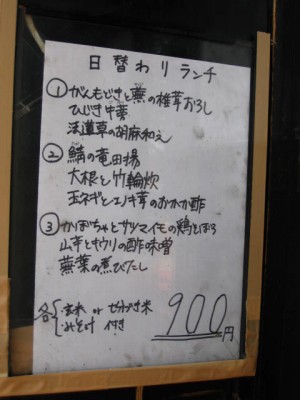 日替わりランチ
①がんもどきと蕪の椎茸おろし
ひじき牛蒡
法蓮草の胡麻和え
②鯖の竜田揚
大根と竹輪炊
玉ネギとエノキ茸のおかか酢
③かぼちゃとサツマイモの鶏そぼろ
山芋とキウリの酢味噌
蕪葉の煮びたし
各 玄米 or 七分づき米
みそ汁 付き
900円